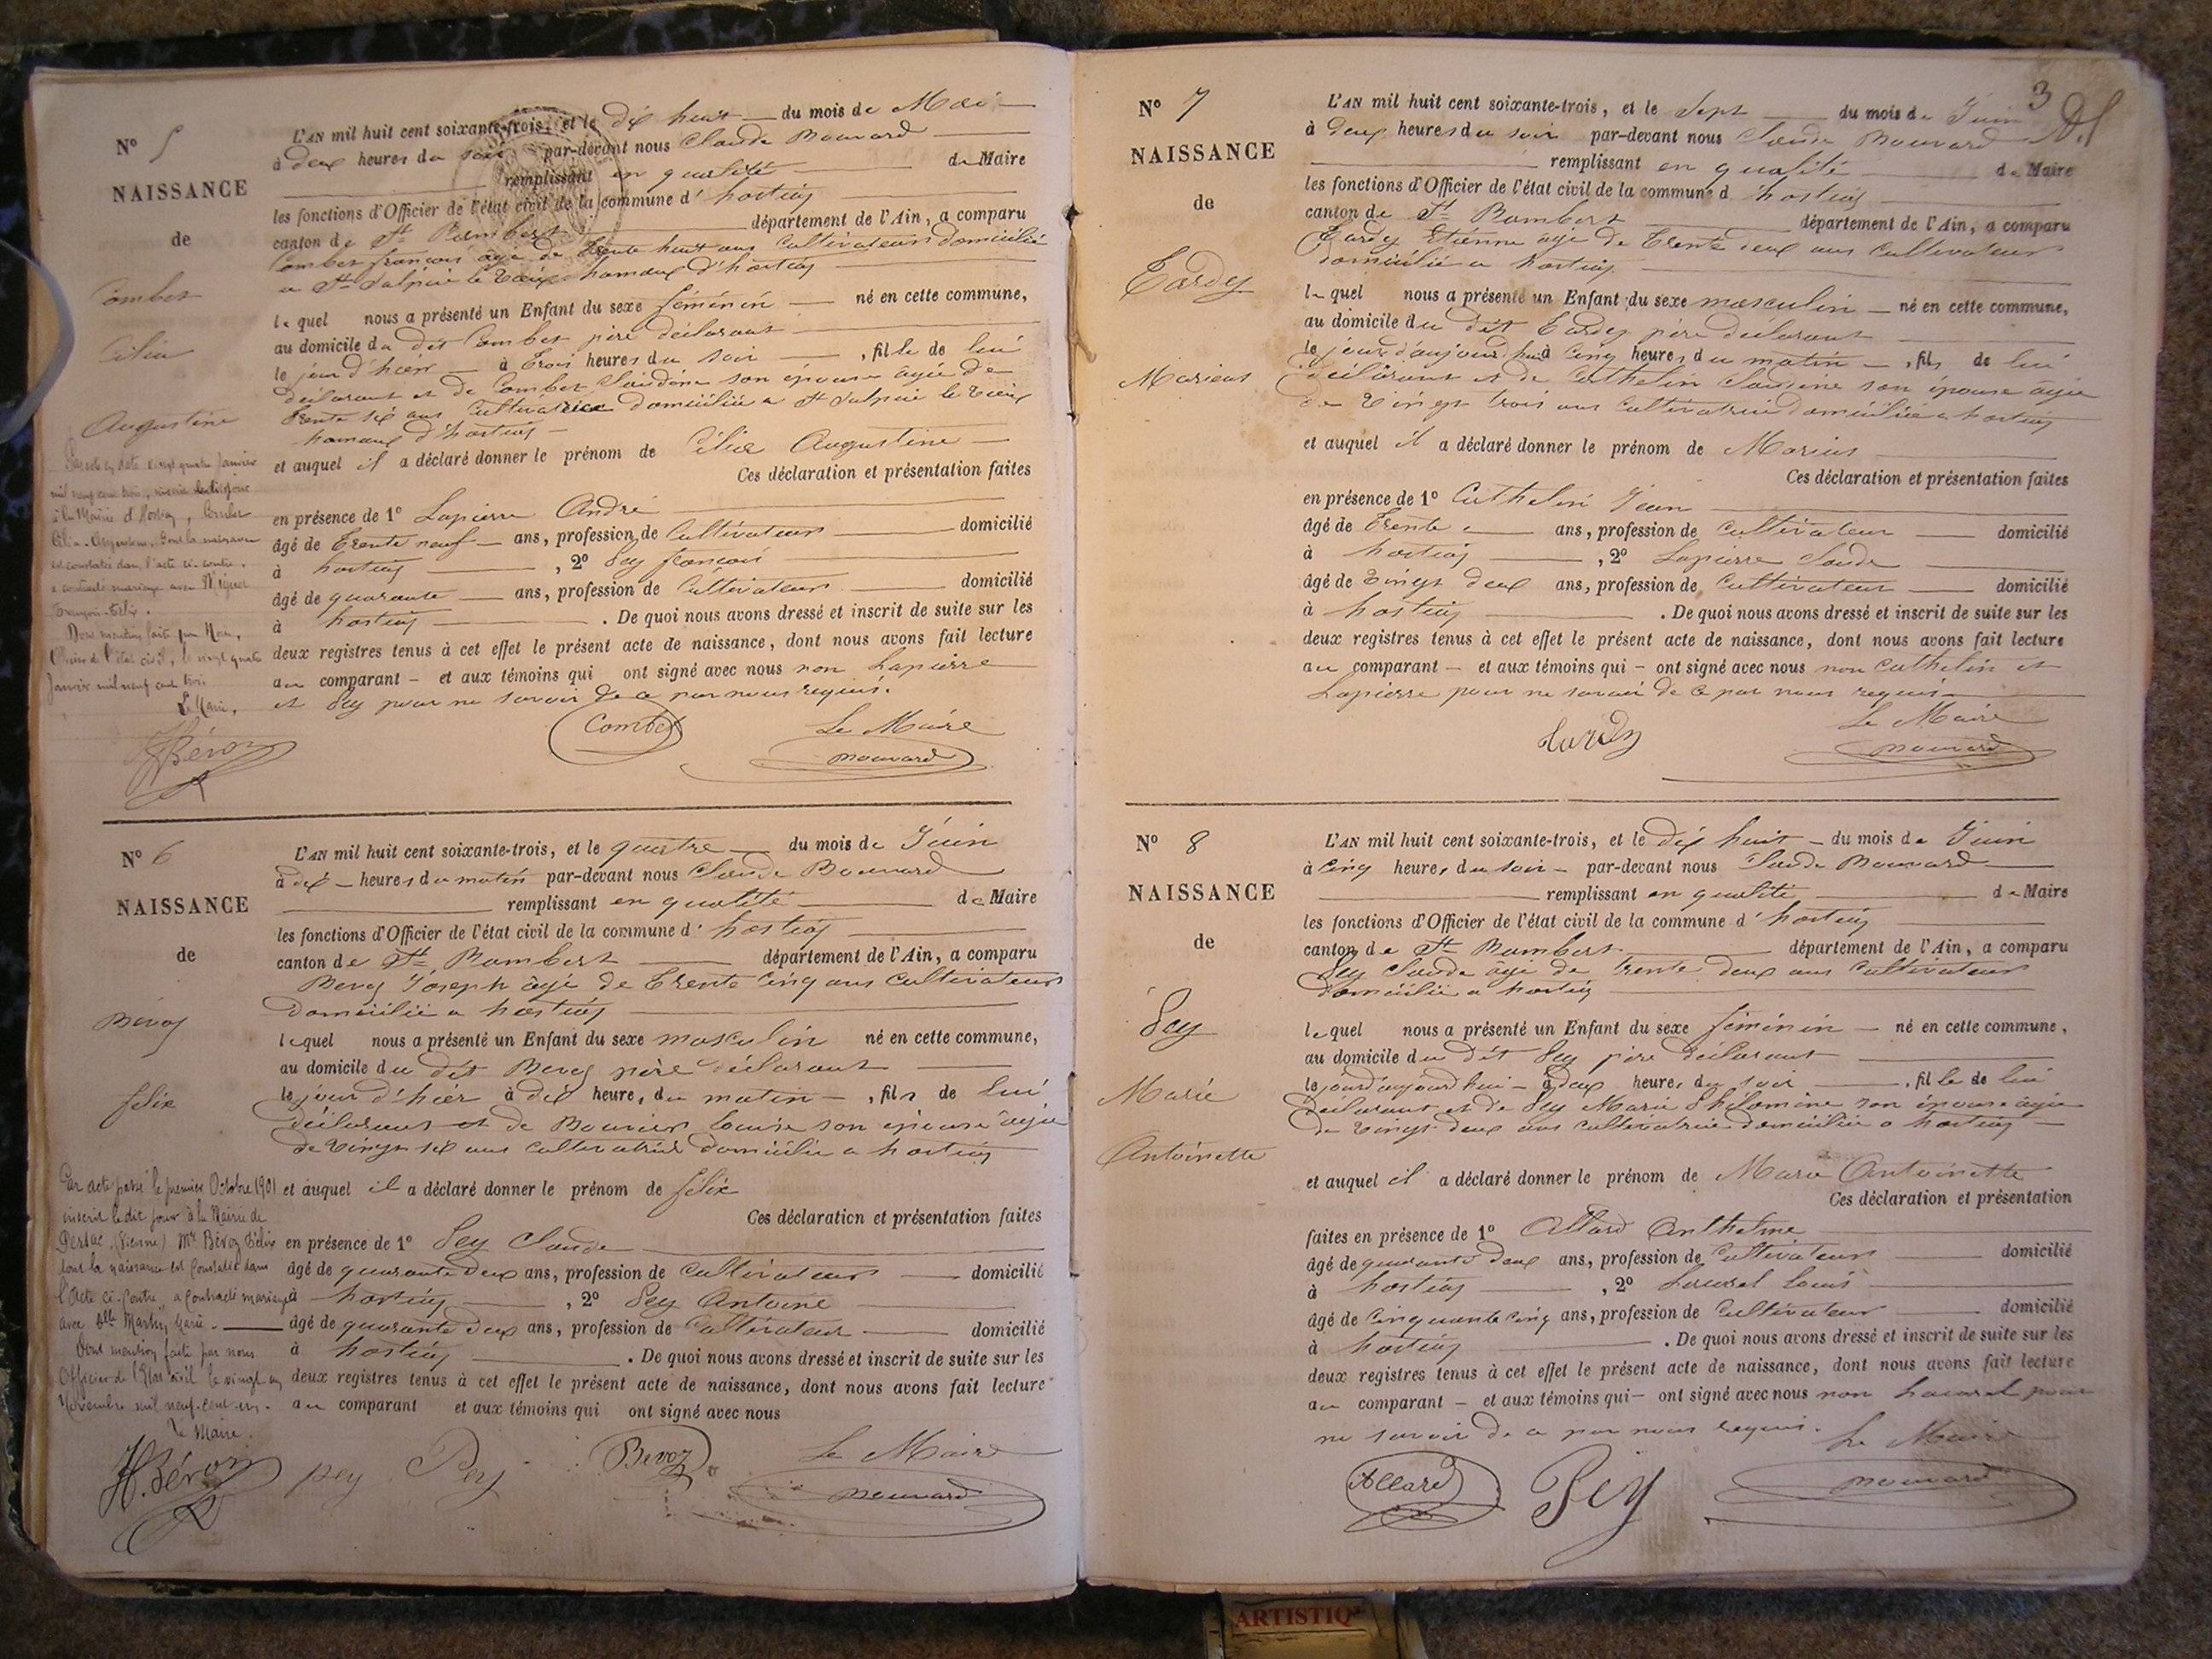 N° 5
NAISSANCE
de
Combet
Célia
Augustine
L'AN mil huit cent soixante-trois, et le dix huit du mois de Mai
à deux heures du soir par-devant nous Claude Bouvard
remplissant en qualité de Maire
les fonctions d'Officier de l'état civil de la commune d'hostiaz
canton de St Rambert département de l'Ain, a comparu
Combet françois âgé de trente huit ans Cultivateur domicilié
a St Sulpice le Vieux hameau d'hostiaz
lequel nous a présenté un Enfant du sexe féminin né en cette commune,
au domicile du dit Combet père déclarant
le jour d'hier à trois heures du soir , fille de lui
déclarant et de Combet Claudine son épouse agée de
trente six ans Cultivatrice domiciliée a St Sulpice le Vieux
hameau d'hostiaz
et auquel il a déclaré donner le prénom de Célia Augustine
Ces déclaration et présentation faites
en présence de 1° Lapierre André
âgé de trente neuf ans, profession de Cultivateur domicilié
à hostiaz , 2° Pey françois
âgé de quarante ans, profession de Cultivateur domicilié
à hostiaz . De quoi nous avons dressé et inscrit de suite sur les
deux registres tenus à cet effet le présent acte de naissance, dont nous avons fait lecture
au comparant et aux témoins qui ont signé avec nous non Lapierre
et Pey pour ne savoir de ce par nous requis.
Combet Le Maire
Bouvard
Par acte en date vingt quatre Janvier
mil neuf cent trois, inscrit le dit jour
à la Mairie d'Hostiaz, Combet
Célia-Augustine dont la naissance
est constatée dans l'acte ci-contre,
a contracté mariage avec
françois-Félix.
Dont mention faite par Nous,
Officier de l'état civil, le vingt quatre
Janvier mil neuf cent trois.
Le Maire,
H. Bévoz
N° 6
NAISSANCE
de
Bévoz
félix
L'AN mil huit cent soixante-trois, et le quatre du mois de Juin
à dix heures du matin par-devant nous Claude Bouvard
remplissant en qualité de Maire
les fonctions d'Officier de l'état civil de la commune d'hostiaz
canton de St Rambert département de l'Ain, a comparu
Bevoz Joseph âgé de trente Cinq ans Cultivateur
domicilié a hostiaz
lequel nous a présenté un Enfant du sexe masculin né en cette commune,
au domicile du dit Bevoz père déclarant
le jour d'hier à dix heures du matin , fils de lui
déclarant et de Louise son épouse âgée
de vingt six ans cultivatrice domiciliée a hostiaz
et auquel il a déclaré donner le prénom de félix
Ces déclaration et présentation faites
en présence de 1° Pey Claude
âgé de quarante deux ans, profession de Cultivateur domicilié
à hostiaz , 2° Pey Antoine
âgé de quarante deux ans, profession de Cultivateur domicilié
à hostiaz . De quoi nous avons dressé et inscrit de suite sur les
deux registres tenus à cet effet le présent acte de naissance, dont nous avons fait lecture
au comparant et aux témoins qui ont signé avec nous
pey Pey Bevoz Le Maire
Bouvard
Par acte passé le premier Octobre 1901
inscrit le dit jour à la Mairie de
Persac (Vienne) Mr Bévoz Félix
dont la naissance est constatée dans
l'Acte ci-contre a contracté mariage
avec Dlle Martin Marie
Dont mention faite par nous
Officier de l'Etat civil le vingt un
Novembre mil neuf cent un.
Le Maire.
H. Bévoz
3
N° 7
NAISSANCE
de
Tardy
Marius
L'AN mil huit cent soixante-trois, et le Sept du mois de Juin
à deux heures du soir par-devant nous Claude Bouvard
remplissant en qualité de Maire
les fonctions d'Officier de l'état civil de la commune d'hostiaz
canton de St Rambert département de l'Ain, a comparu
Tardy Etienne âgé de trente deux ans cultivateur
domicilié a hostiaz
lequel nous a présenté un Enfant du sexe masculin né en cette commune,
au domicile du dit Tardy père déclarant
le jour d'aujourd'hui à Cinq heures du matin , fils de lui
déclarant et de Cuthelin Claudine son épouse agée
de vingt trois ans cultivatrice domiciliée a hostiaz
et auquel il a déclaré donner le prénom de Marius
Ces déclaration et présentation faites
en présence de 1° Cuthelin Jean
âgé de trente ans, profession de cultivateur domicilié
à hostiaz , 2° Lapierre Claude
âgé de vingt deux ans, profession de Cultivateur domicilié
à hostiaz . De quoi nous avons dressé et inscrit de suite sur les
deux registres tenus à cet effet le présent acte de naissance, dont nous avons fait lecture
au comparant et aux témoins qui ont signé avec nous non Cuthelin et
Lapierre pour ne savoir de ce par nous requis
tardy Le Maire
Bouvard
N° 8
NAISSANCE
de
Pey
Marie
Antoinette
L'AN mil huit cent soixante-trois, et le dix huit du mois de Juin
à cinq heures du soir par-devant nous Claude Bouvard
remplissant en qualité de Maire
les fonctions d'Officier de l'état civil de la commune d'hostiaz
canton de St Rambert département de l'Ain, a comparu
Pey Claude âgé de trente deux ans cultivateur
domicilié a hostiaz
lequel nous a présenté un Enfant du sexe féminin né en cette commune,
au domicile du dit Pey père déclarant
le jourd'aujourd'hui à deux heures du soir , fille de lui
déclarant et de Pey Marie Philomène son épouse agée
de vingt deux ans cultivatrice domiciliée a hostiaz
et auquel il a déclaré donner le prénom de Marie Antoinette
Ces déclaration et présentation
faites en présence de 1° Allard Anthelme
âgé de quarante deux ans, profession de Cultivateur domicilié
à hostiaz , 2° Louis
âgé de cinquante cinq ans, profession de Cultivateur domicilié
à hostiaz . De quoi nous avons dressé et inscrit de suite sur les
deux registres tenus à cet effet le présent acte de naissance, dont nous avons fait lecture
au comparant et aux témoins qui ont signé avec nous non pour
ne savoir de ce par nous requis. Le Maire
Allard Pey Bouvard
ARTISTIQ